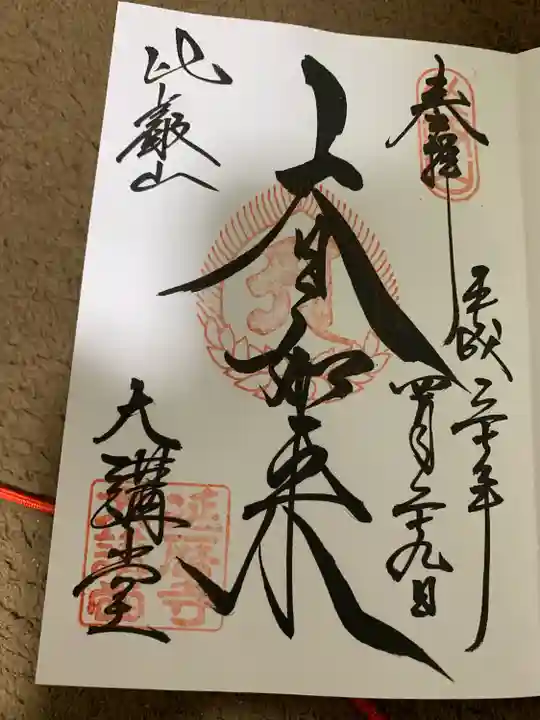 奉拝
平成三十年
四月二十九日
大日如来
比叡山
大講堂
延暦寺
大講堂